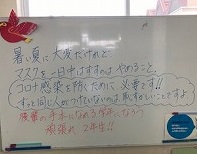 暑い夏に大変だけれど
マスクを一日中はずすのは やめること。
コロナ感染を防ぐために 必要です!!
ずっと同じ人がつけていないのは、恥ずかしいことですよ
後輩の手本になれる学年になろう
頑張れ 2年生!!